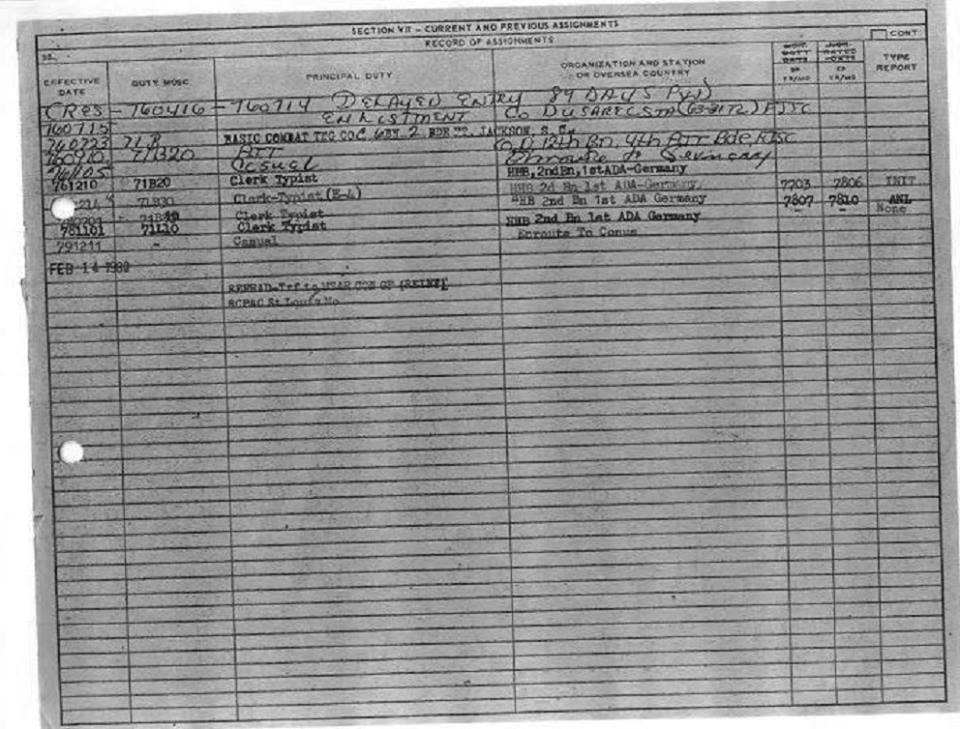 SECTION VII - CURRENT AND PREVIOUS ASSIGNMENTS
CONT
RECORD OF ASSIGNMENTS
EFFECTIVE DATE
DUTY MOSC
PRINCIPAL DUTY
ORGANIZATION AND STATION OR OVERSEA COUNTRY
YR/MO
YR/MO
TYPE REPORT
CRES - 760416 - 760714 DELAYED ENTRY 89 DAYS
ENLISTMENT
760715
760723 BASIC COMBAT TNG CO C 6BN 2 BDE FT. JACKSON, S. C.
71B20 Co D 12th Bn, 4th Bde
Casual Enroute to Germany
HHB, 2nd Bn, 1st ADA-Germany
761210 71B20 Clerk Typist HHB 2d Bn 1st ADA-Germany 7703 7806 INIT
71B30 Clerk-Typist (E-4) HHB 2nd Bn 1st ADA Germany 7807 7810 ANL
Clerk Typist - - None
781101 71L10 Clerk Typist HHB 2nd Bn 1st ADA Germany
791211 - Casual Enroute To Conus
FEB 14 1980
REFRAD-Trf to USAR CON GP (REINF)
RCPAC St Louis Mo